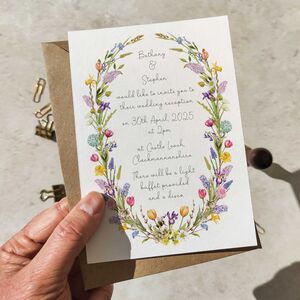 Bethany
&
Stephen
would like to invite you to
their wedding reception
on 30th April, 2025
at 2pm
at Castle Leach,
Clackmannanshire
There will be a light
buffet provided
and a disco